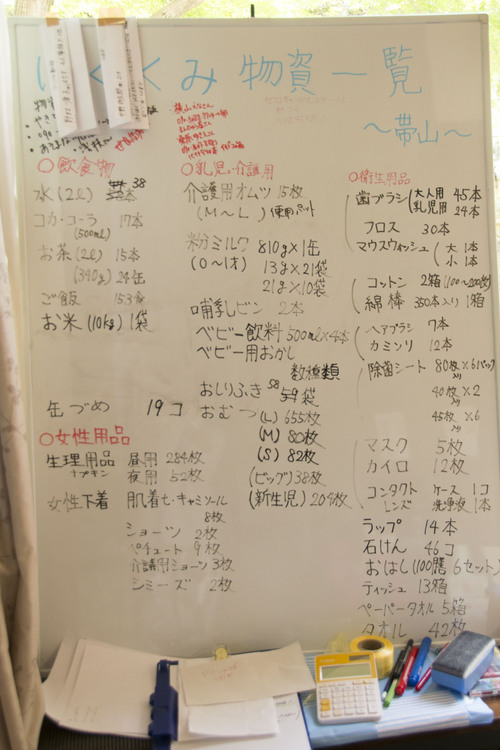 くみ物資一覧
～帯山～
○飲食物
水(2ℓ) 38本
コカ・コーラ 17本
(500ml)
お茶(2ℓ) 15本
(340g) 24缶
ご飯 153食
お米(10kg) 1袋
缶づめ 19コ
○女性用品
生理用品 昼用 284枚
ナプキン 夜用 52枚
女性下着 肌着セ・キャミソール
8枚
ショーツ 2枚
ペチュート 9枚
介護用ショーツ 3枚
シミーズ 2枚
○乳児・介護用
介護用オムツ 15枚
(M～L)
粉ミルク 810g×1缶
(0～1才) 13g×21袋
21g×10袋
哺乳ビン 2本
ベビー飲料 500ml×4本
ベビー用おかし
数種類
おしりふき 58袋
おむつ (L) 655枚
(M) 80枚
(S) 82枚
(ビッグ) 38枚
(新生児) 204枚
○衛生用品
歯ブラシ 大人用 45本
乳児用 24本
フロス 30本
マウスウォッシュ 大 1本
小 1本
コットン 2箱 (100～200枚)
綿棒 350本入り 1箱
ヘアブラシ 7本
カミソリ 12本
除菌シート 80枚×6パック
入り
40枚×2
入り
45枚×6
マスク 5枚
カイロ 12枚
コンタクト ケース 1コ
レンズ 洗浄液 1本
ラップ 14本
石けん 46コ
おはし(100膳 6セット)
ティッシュ 13箱
ペーパータオル 5箱
タオル 42枚